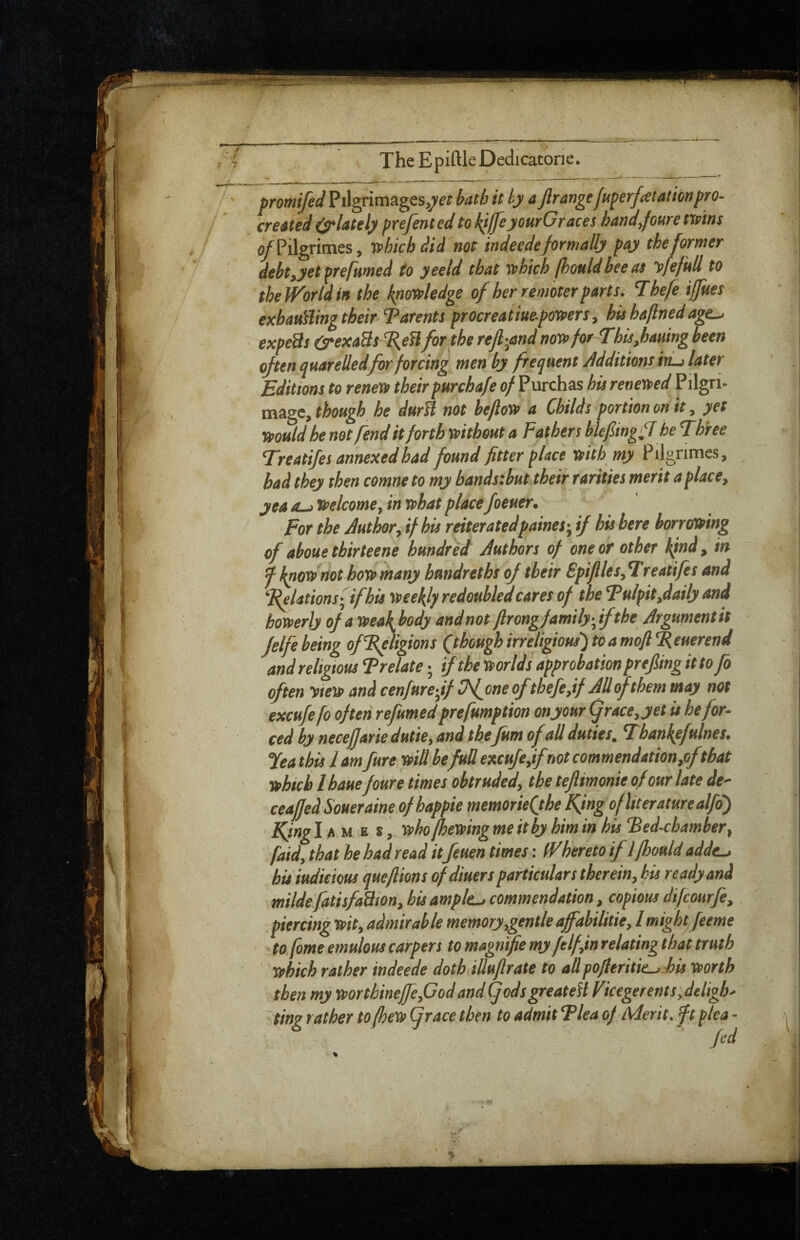 The Epiſtle Dedicatorie.
promiſed Pilgrimages, yet hath it by a ſtrange ſuperfœtation pro-
created & lately preſented to kiſſe your Graces hand, foure twins
of Pilgrimes, which did not indeede formally pay the former
debt, yet preſumed to yeeld that which ſhould bee as vſefull to
the World in the knowledge of her remoter parts. Theſe iſſues
exhauſting their Parents procreatiue powers, his haſtned age
expects & exacts Reſt for the reſt; and now for This, hauing been
often quarelled for forcing men by frequent Additions in later
Editions to renew their purchaſe of Purchas his renewed Pilgri-
mage, though he durſt not beſtow a Childs portion on it, yet
would he not ſend it forth without a Fathers bleſsing. The Three
Treatiſes annexed had found fitter place with my Pilgrimes,
had they then comne to my hands: but their rarities merit a place,
yea a welcome, in what place ſoeuer.
For the Author, if his reiterated paines; if his here borrowing
of aboue thirteene hundred Authors of one or other kind, in
I know not how many hundreths of their Epiſtles, Treatiſes and
Relations; if his weekly redoubled cares of the Pulpit, daily and
howerly of a weak body and not ſtrong family; if the Argument it
ſelfe being of Religions (though irreligious) to a moſt Reuerend
and religious Prelate; if the worlds approbation preſsing it to ſo
often view and cenſure; if None of theſe, if All of them may not
excuſe ſo often reſumed preſumption on your Grace, yet is he for-
ced by neceſſarie dutie, and the ſum of all duties, Thankefulnes.
Yea this I am ſure will be full excuſe, if not commendation, of that
which I haue foure times obtruded, the teſtimonie of our late de-
ceaſſed Soueraine of happie memorie (the King of literature alſo)
King IAMES, who ſhewing me it by him in his Bed-chamber,
ſaid, that he had read it ſeuen times: Whereto if I ſhould adde
his iudicious queſtions of diuers particulars therein, his ready and
milde ſatisfaction, his ample commendation, copious diſcourſe,
piercing wit, admirable memory, gentle affabilitie, I might ſeeme
to ſome emulous carpers to magnifie my ſelf, in relating that truth
which rather indeede doth illuſtrate to all poſteritie his worth
then my worthineſſe, God and Gods greateſt Vicegerents, deligh-
ting rather to ſhew Grace then to admit Plea of Merit. It plea-
ſed